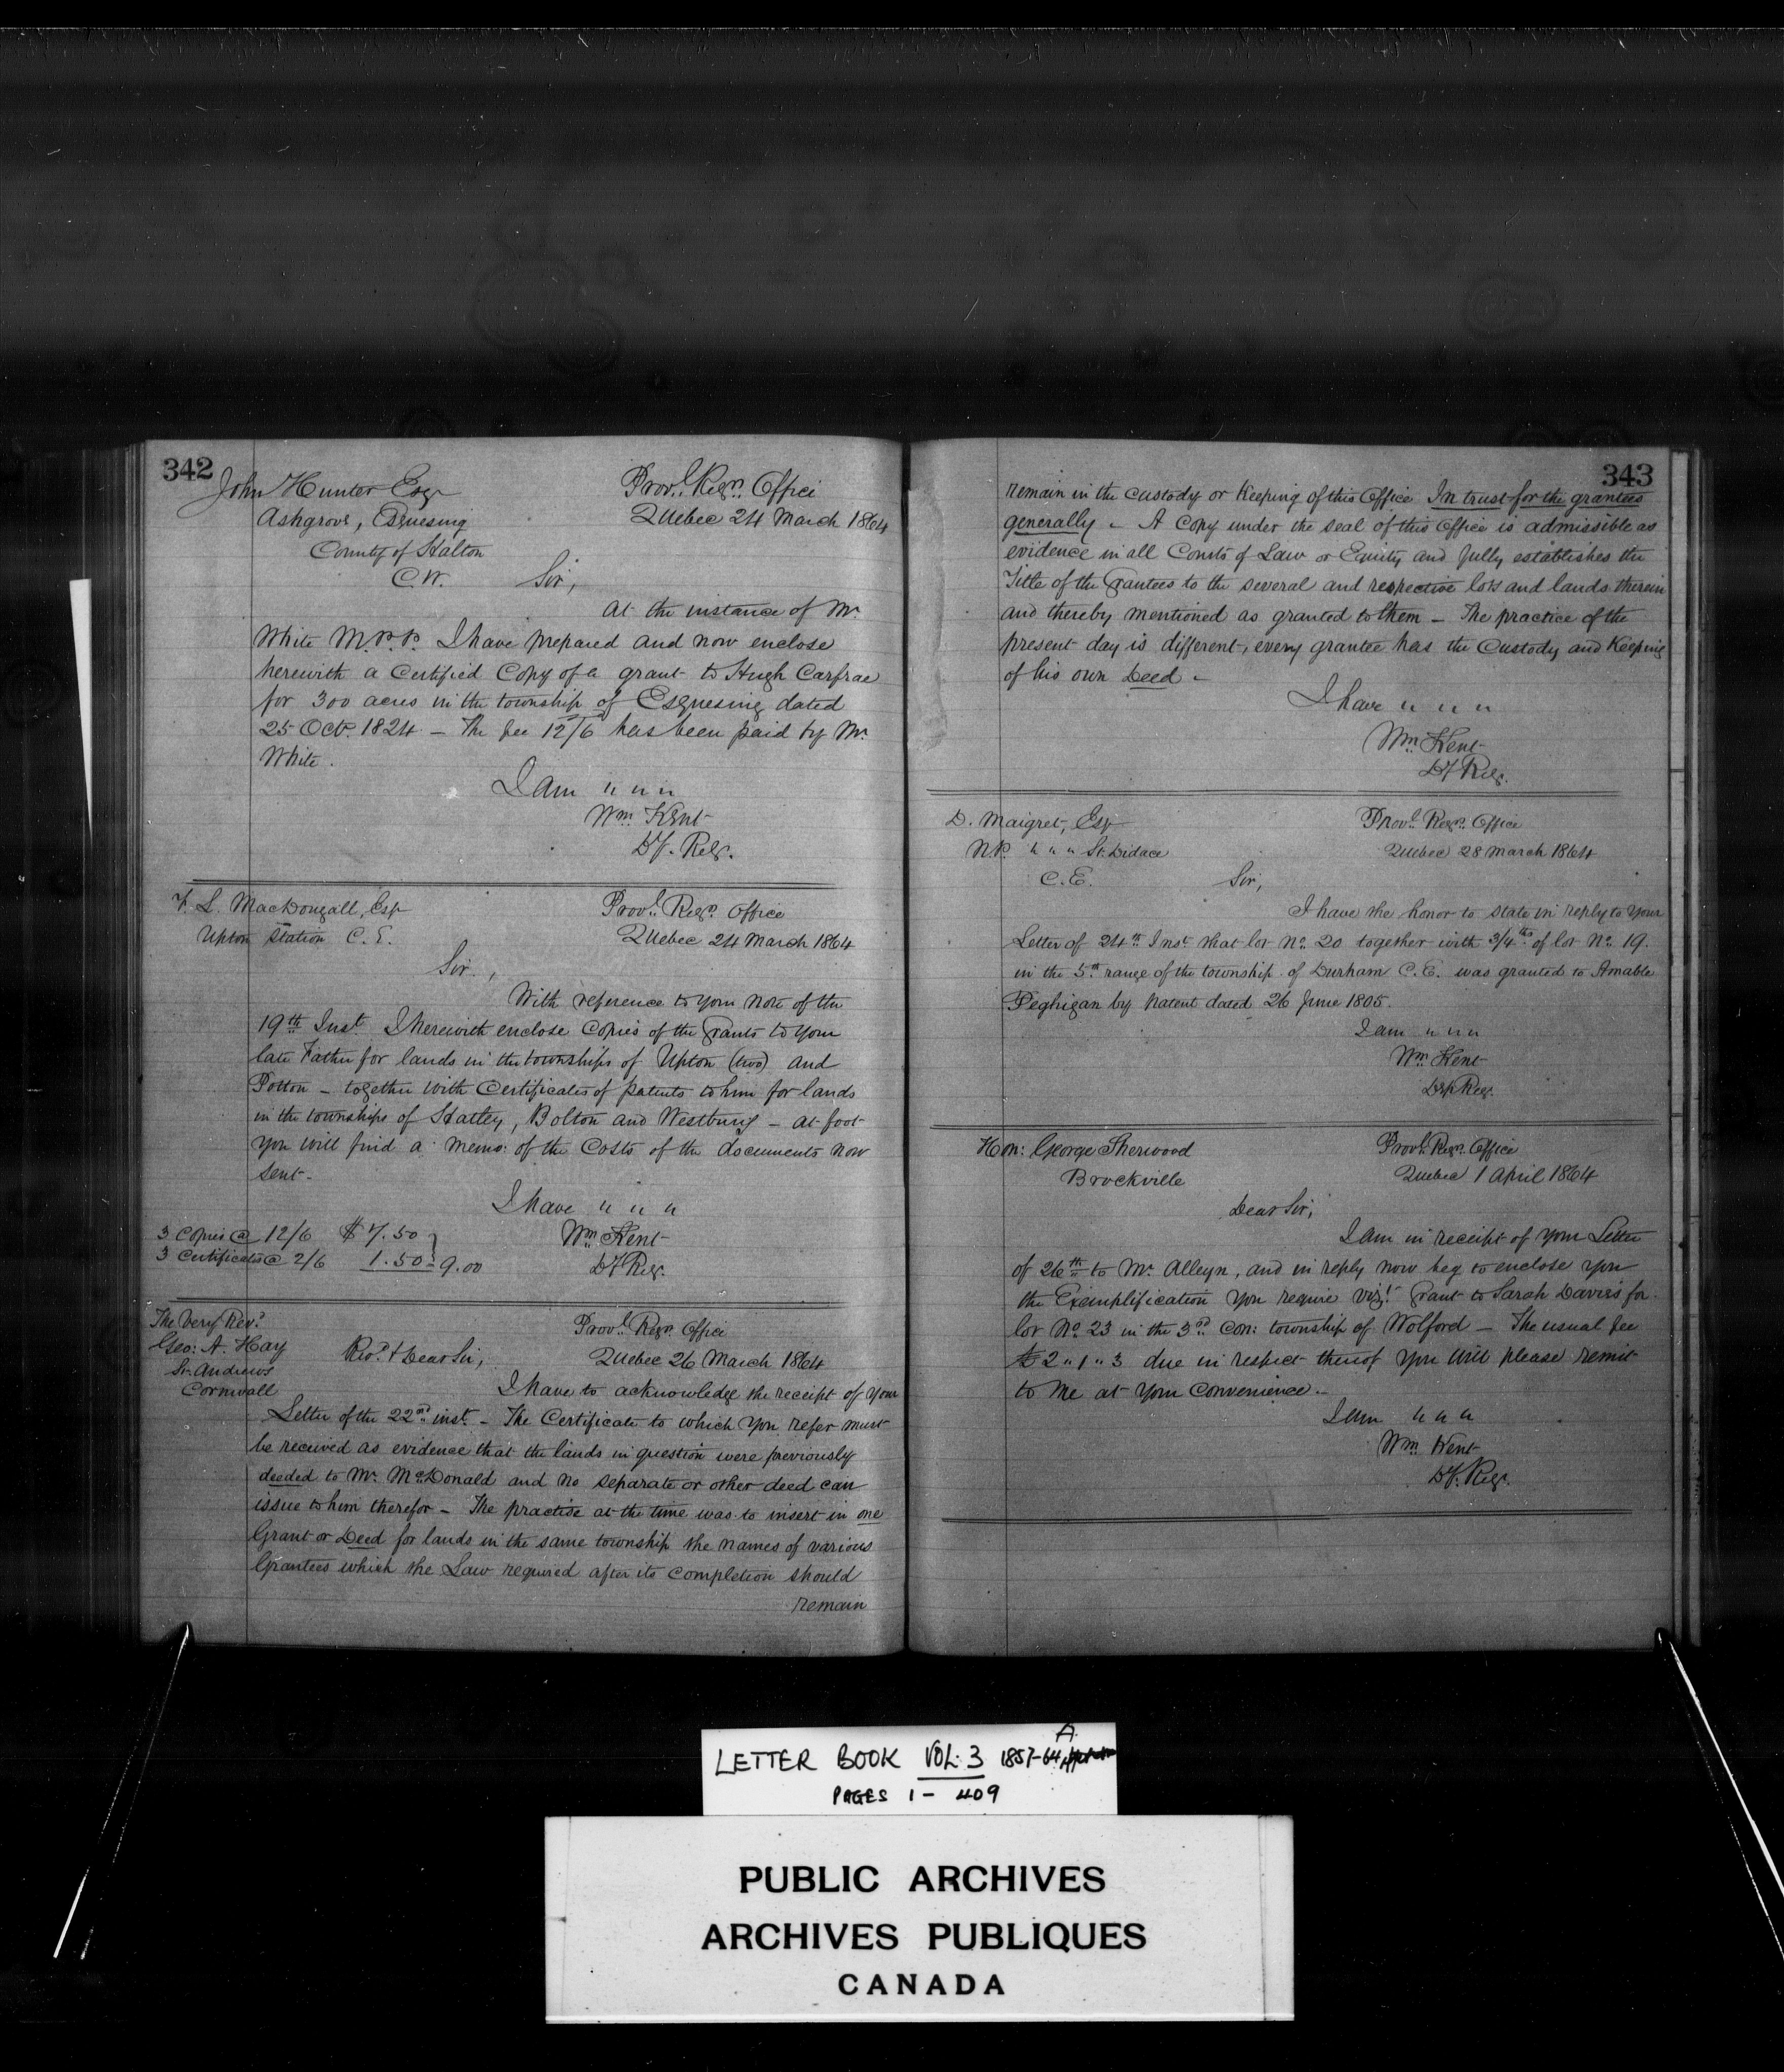 342
John Hunter Esqr
Provl. Regn. Office
Ashgrove, Esquesing
Quebec 24 March 1864
County of Halton
C.W. Sir,
At the instance of Mr.
White M.P.P. I have prepared and now enclose
herewith a Certified Copy of a grant to Hugh Carfrae
for 300 acres in the township of Esquesing dated
25 Octr. 1824 — The fee 12/6 has been paid by Mr.
White.
I am " " "
Wm. Kent
Dy. Regr.
F. L. MacDougall, Esqr
Provl. Regn. Office
Upton Station C.E.
Quebec 24 March 1864
Sir,
With reference to your note of the
19th Inst. I herewith enclose Copies of the Grants to your
late Father for lands in the townships of Upton (two) and
Potton — together with Certificates of patents to him for lands
in the townships of Hatley, Bolton and Westbury — at foot
you will find a memo: of the Costs of the documents now
sent.
I have " " "
3 Copies @ 12/6 $7.50
Wm. Kent
3 Certificates @ 2/6 1.50 = 9.00
Dy Regr.
The Very Revd.
Provl. Regn. Office
Geo: A. Hay Revd. & Dear Sir,
Quebec 26 March 1864
St. Andrews
Cornwall
I have to acknowledge the receipt of your
Letter of the 22nd inst. — The Certificate to which you refer must
be received as evidence that the lands in question were previously
deeded to Mr. McDonald and no separate or other deed can
issue to him therefor — The practice at the time was to insert in one
Grant or Deed for lands in the same township the names of various
Grantees which the Law required after its completion should
remain
343
remain in the custody or Keeping of this Office In trust for the grantees
generally — A Copy under the seal of this Office is admissible as
evidence in all Courts of Law or Equity and fully establishes the
Title of the Grantees to the several and respective lots and lands therein
and thereby mentioned as granted to them — The practice of the
present day is different, every grantee has the Custody and Keeping
of his own Deed —
I have " " "
Wm. Kent
Dy Regr.
D. Maigret, Esqr
Provl. Regn. Office
N.P. " " " St. Didace
Quebec 28 March 1864
C.E. Sir,
I have the honor to state in reply to your
Letter of 24th Inst that lot No. 20 together with 3/4ths of lot No. 19.
in the 5th range of the township of Durham C.E. was granted to Amable
Peghigan by patent dated 26 June 1805.
I am " " "
Wm. Kent
Dy Regr.
Hon: George Sherwood
Provl. Regn. Office
Brockville
Quebec 1 April 1864
Dear Sir,
I am in receipt of your Letter
of 26th to Mr. Alleyn, and in reply now beg to enclose you
the Exemplification you require vizt. Grant to Sarah Davies for
lot No 23 in the 3rd Con: township of Wolford — The usual fee
£2 " 1 " 3 due in respect thereof you will please remit
to me at your convenience —
I am " " "
Wm. Kent
Dy. Regr.
LETTER BOOK VOL. 3 1857-64 A
PAGES 1 - 409
PUBLIC ARCHIVES
ARCHIVES PUBLIQUES
CANADA